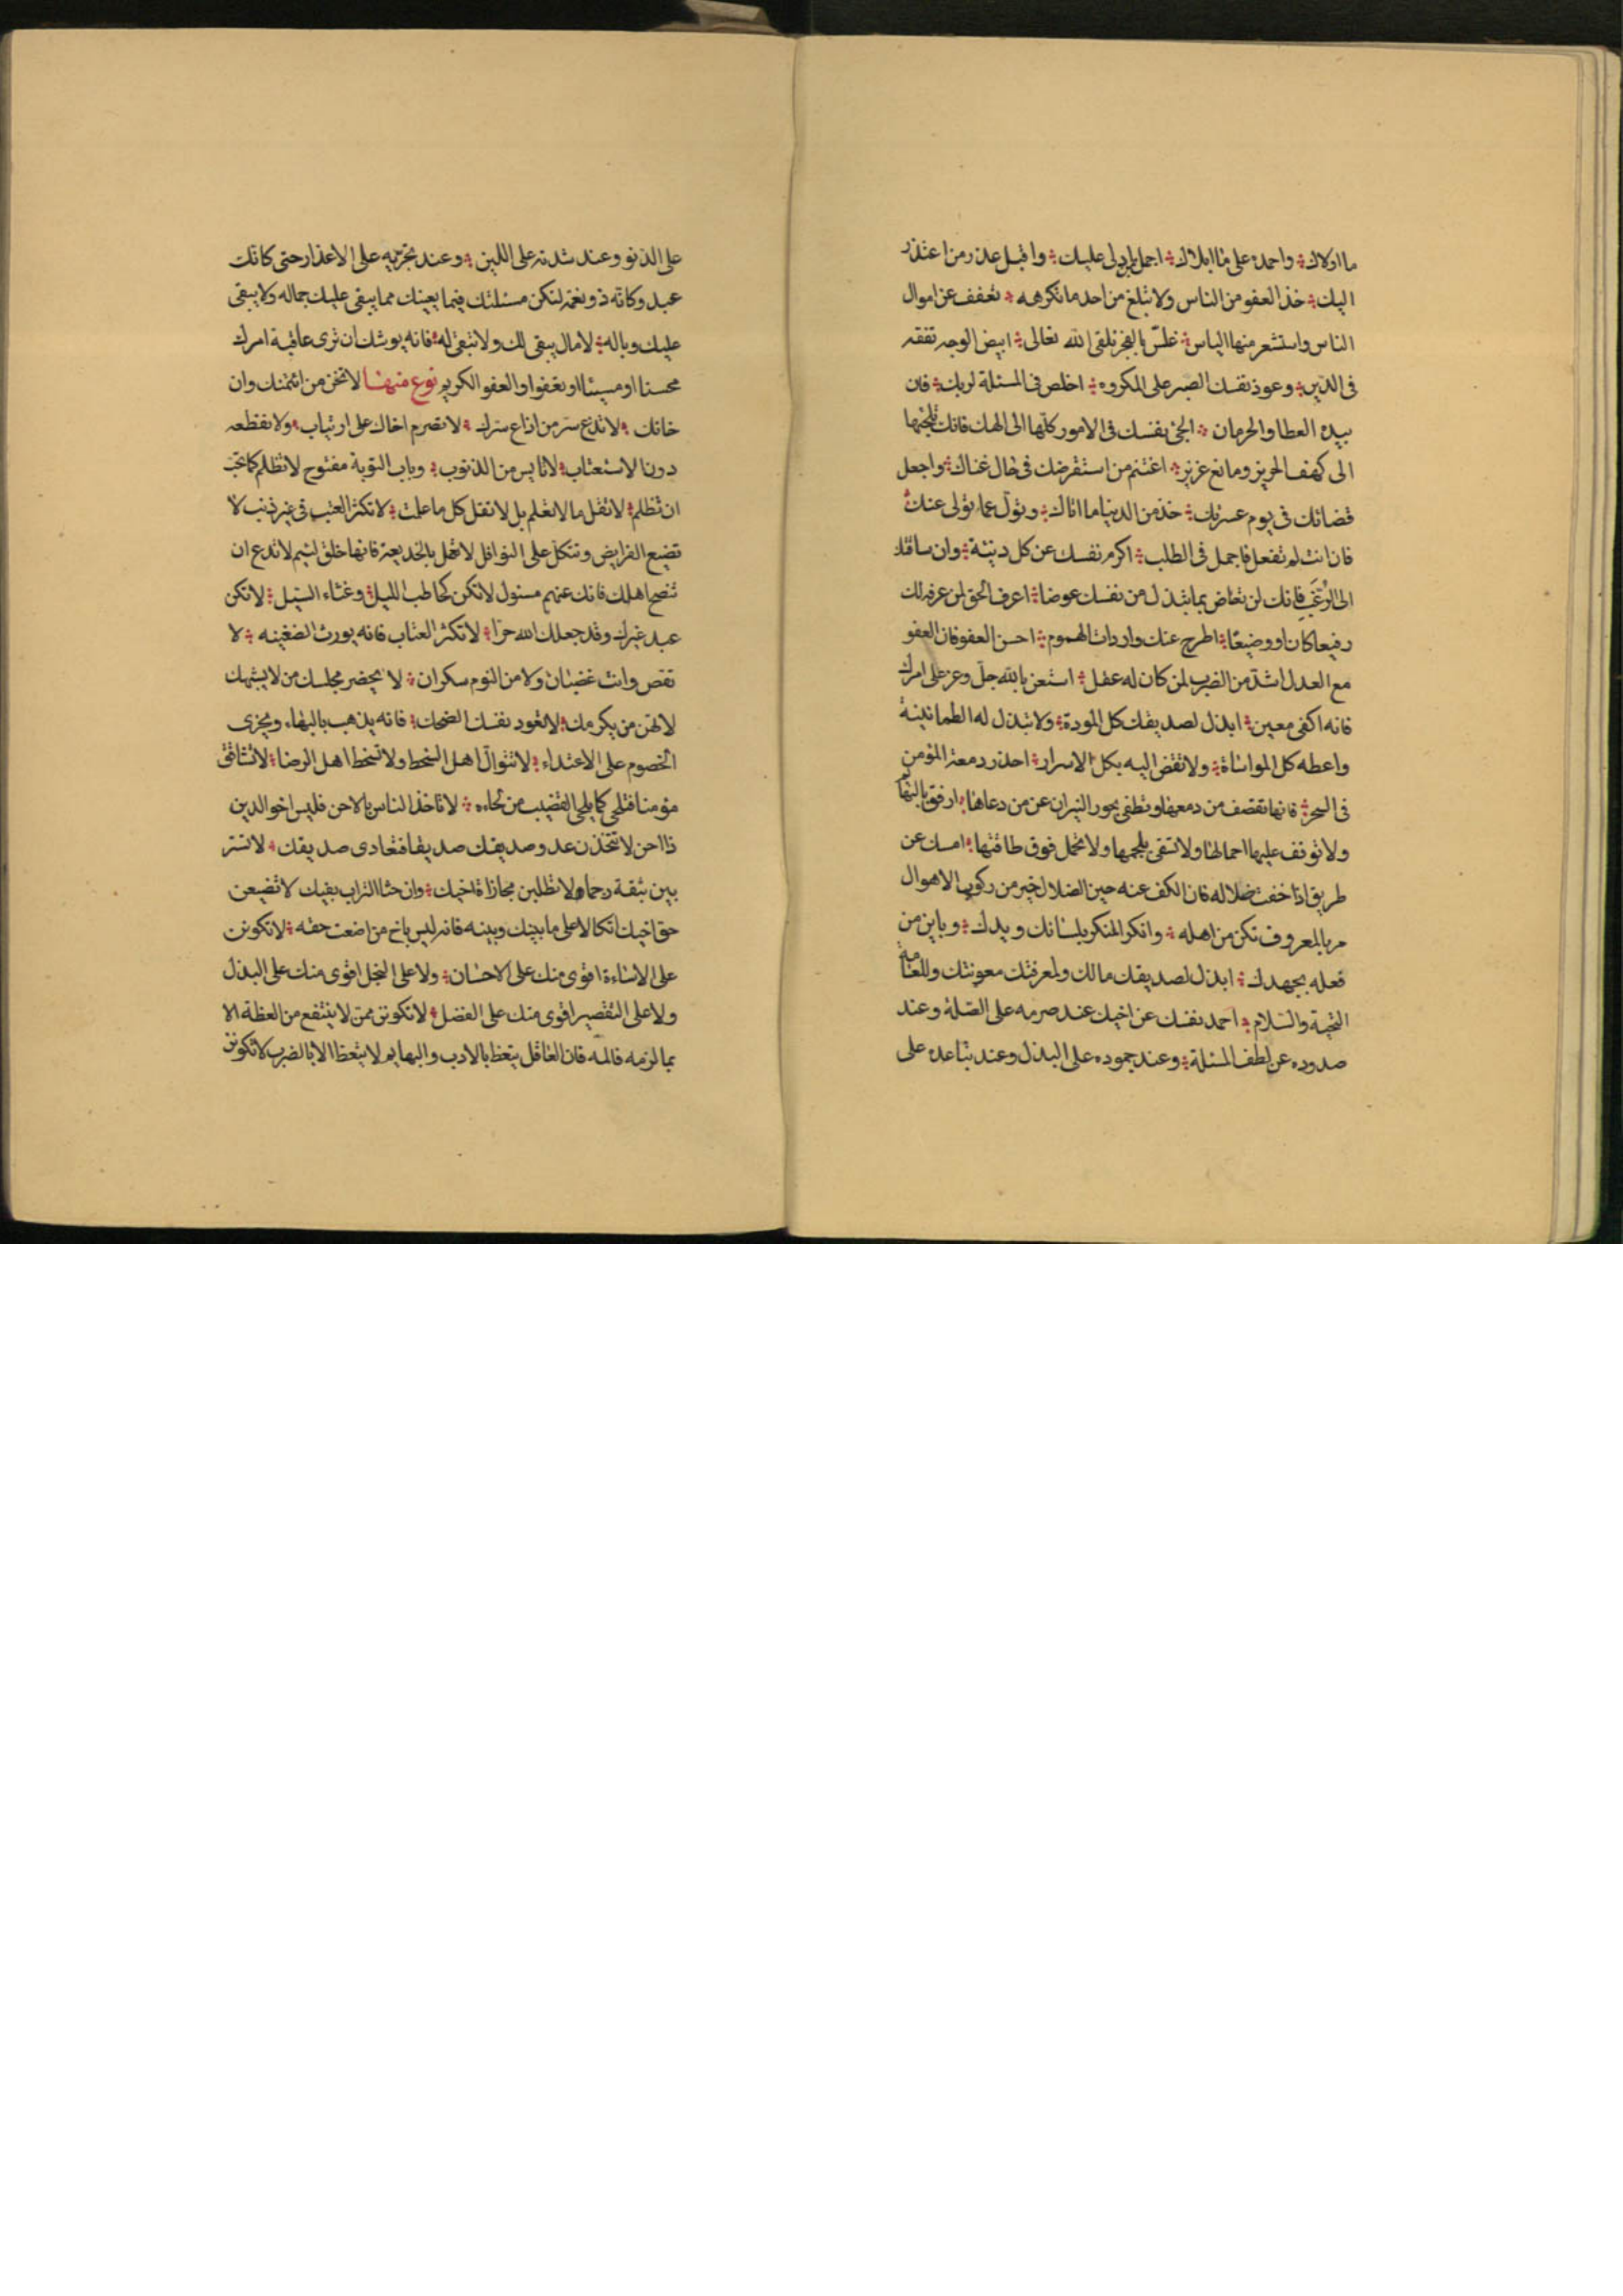 ما اولاك؞ واحمده على ما ابلاك؞ اجمل لمن ادلى عليك؞ واقبل عذر من اعتذر
اليك؞ خذ العفو من الناس ولا تبلغ من احد ما تكرهه ؞ تعفف عن اموال
الناس واستشعر منها الياس؞ غلّس بالفجر تلقى الله تعالى؞ ابيض الوجه تفقه
فى الدّين؞ وعود نفسك الصبر على المكروه؞ اخلص فى المسئلة لربك؞ فان
بيده العطا والحرمان ؞ الجئ نفسك فى الامور كلّها الى الهك فانك تلجئها
الى كهف حريز ومانع عزيز؞ اغتنم من استقرضك فى حال غناك؞ واجعل
قضائك فى يوم عسرتك؞ خذ من الدنيا ما اتاك؞ وتولّ عما تولى عنك؞
فان انت لم تفعل فاجمل فى الطلب؞ اكرم نفسك عن كل دنيّة؞ وان ساقتك
الى الرّغب فانك لن تعتاض بما تبذل من نفسك عوضا؞ اعرف الحق لمن عرفه لك
رفيعا كان او وضيعًا؞ اطرح عنك واردات الهموم؞ احسن العفو فان العفو
مع العدل اشدّ من الضرب لمن كان له عقل؞ استعن بالله جلّ وعز على امرك
فانه اكفى معين؞ ابذل لصديقك كل المودة؞ ولا تبذل له الطمانينة
واعطه كل المواساة؞ ولا تفض اليه بكل الاسرار؞ احذر دمعة المؤمن
فى السحر؞ فانها تقصف من دمعها وتطفى بحور النيران عن من دعاها؞ ارفق بالبهايم
ولا توقف عليها احمالها ولا تسقى بلجمها ولا تحمل فوق طاقتها؞ امسك عن
طريق اذا خفت ضلاله فان الكف عنه حين الضلال خير من ركوب الاهوال
مر بالمعروف تكن من اهله ؞ وانكر المنكر بلسانك ويدك؞ وباين من
فعله بجهدك؞ ابذل لصديقك مالك ولمعرفتك معونتك وللعامة
التحية والسّلام؞ احمد نفسك عن اخيك عند صرمه على الصّلة وعند
صدوده عن لطف المسئلة؞ وعند جموده على البذل وعند تباعده على
على الدنو وعند شدته على اللين؞ وعند تجرّمه على الاعذار حتى كانك
عبد وكانه ذو نعمة لتكن مسئلتك فيما يعينك مما يبقى عليك جماله ولا يبقى
عليك وباله؞ لا مال يبقى لك ولا تبقى له؞ فانه يوشك ان ترى عاقبة امرك
محسنا او مسيئا او تعفوا والعفو الكريم نوع منها لا تخن من ائتمنك وان
خانك ؞ لا تذع سرّ من اذاع سرّك ؞ لا تصرم اخاك على ارتياب؞ ولا تقطعه
دون الاستعتاب؞ لا تايس من الذنوب؞ وباب التوبة مفتوح لا تظلم كما تحبّ
ان تظلم؞ لا تقل ما لا تعلم بل لا تقل كل ما علمت؞ لا تكثر العتب فى غير ذنب لا
تضيع الفرايض وتتكل على النوافل لا تعمل بالخديعة فانها خلق لئيم لا تدع ان
تنصح اهلك فانك عنهم مسئول لا تكن كحاطب الليل؞ وغثاء السّيل؞ لا تكن
عبد غيرك وقد جعلك الله حرّا؞ لا تكثر العتاب فانه يورث الضغينه ؞ لا
تقص وانت غضبان ولا من النوم سكران؞ لا يحضر مجلسك من لا يشبهك
لا تهن من يكرمك؞ لا تعود نفسك الضحك؞ فانه يذهب بالبهاء ويجزى
الخصوم على الاعتداء ؞ لا تتوالّ اهل السّخط ولا تسخط اهل الرضا؞ لا تشاقق
مؤمنا فتلحى كما يلحى القضيب من لحاءه ؞ لا تاخذ الناس بالاحن فليس اخو الدين
ذا احن لا تتخذن عدو صديقك صديقا فتعادى صديقك؞ لا تستر
بين بثقة رجما ولا تطلبن مجازاة اخيك؞ وان حثا التراب بفيك لا تضيعن
حق اخيك اتكالا على ما بينك وبينه فانه ليس باخ من اضعت حقه؞ لا تكونن
على الاساءة اقوى منك على الاحسان؞ ولا على البخل اقوى منك على البذل
ولا على التقصير اقوى منك على الفضل؞ لا تكونن ممن لا ينتفع من العظة الا
بما لزمه فالمه فان العاقل يتعظ بالادب والبهايم لا يتعظ الا بالضرب لا تكونن